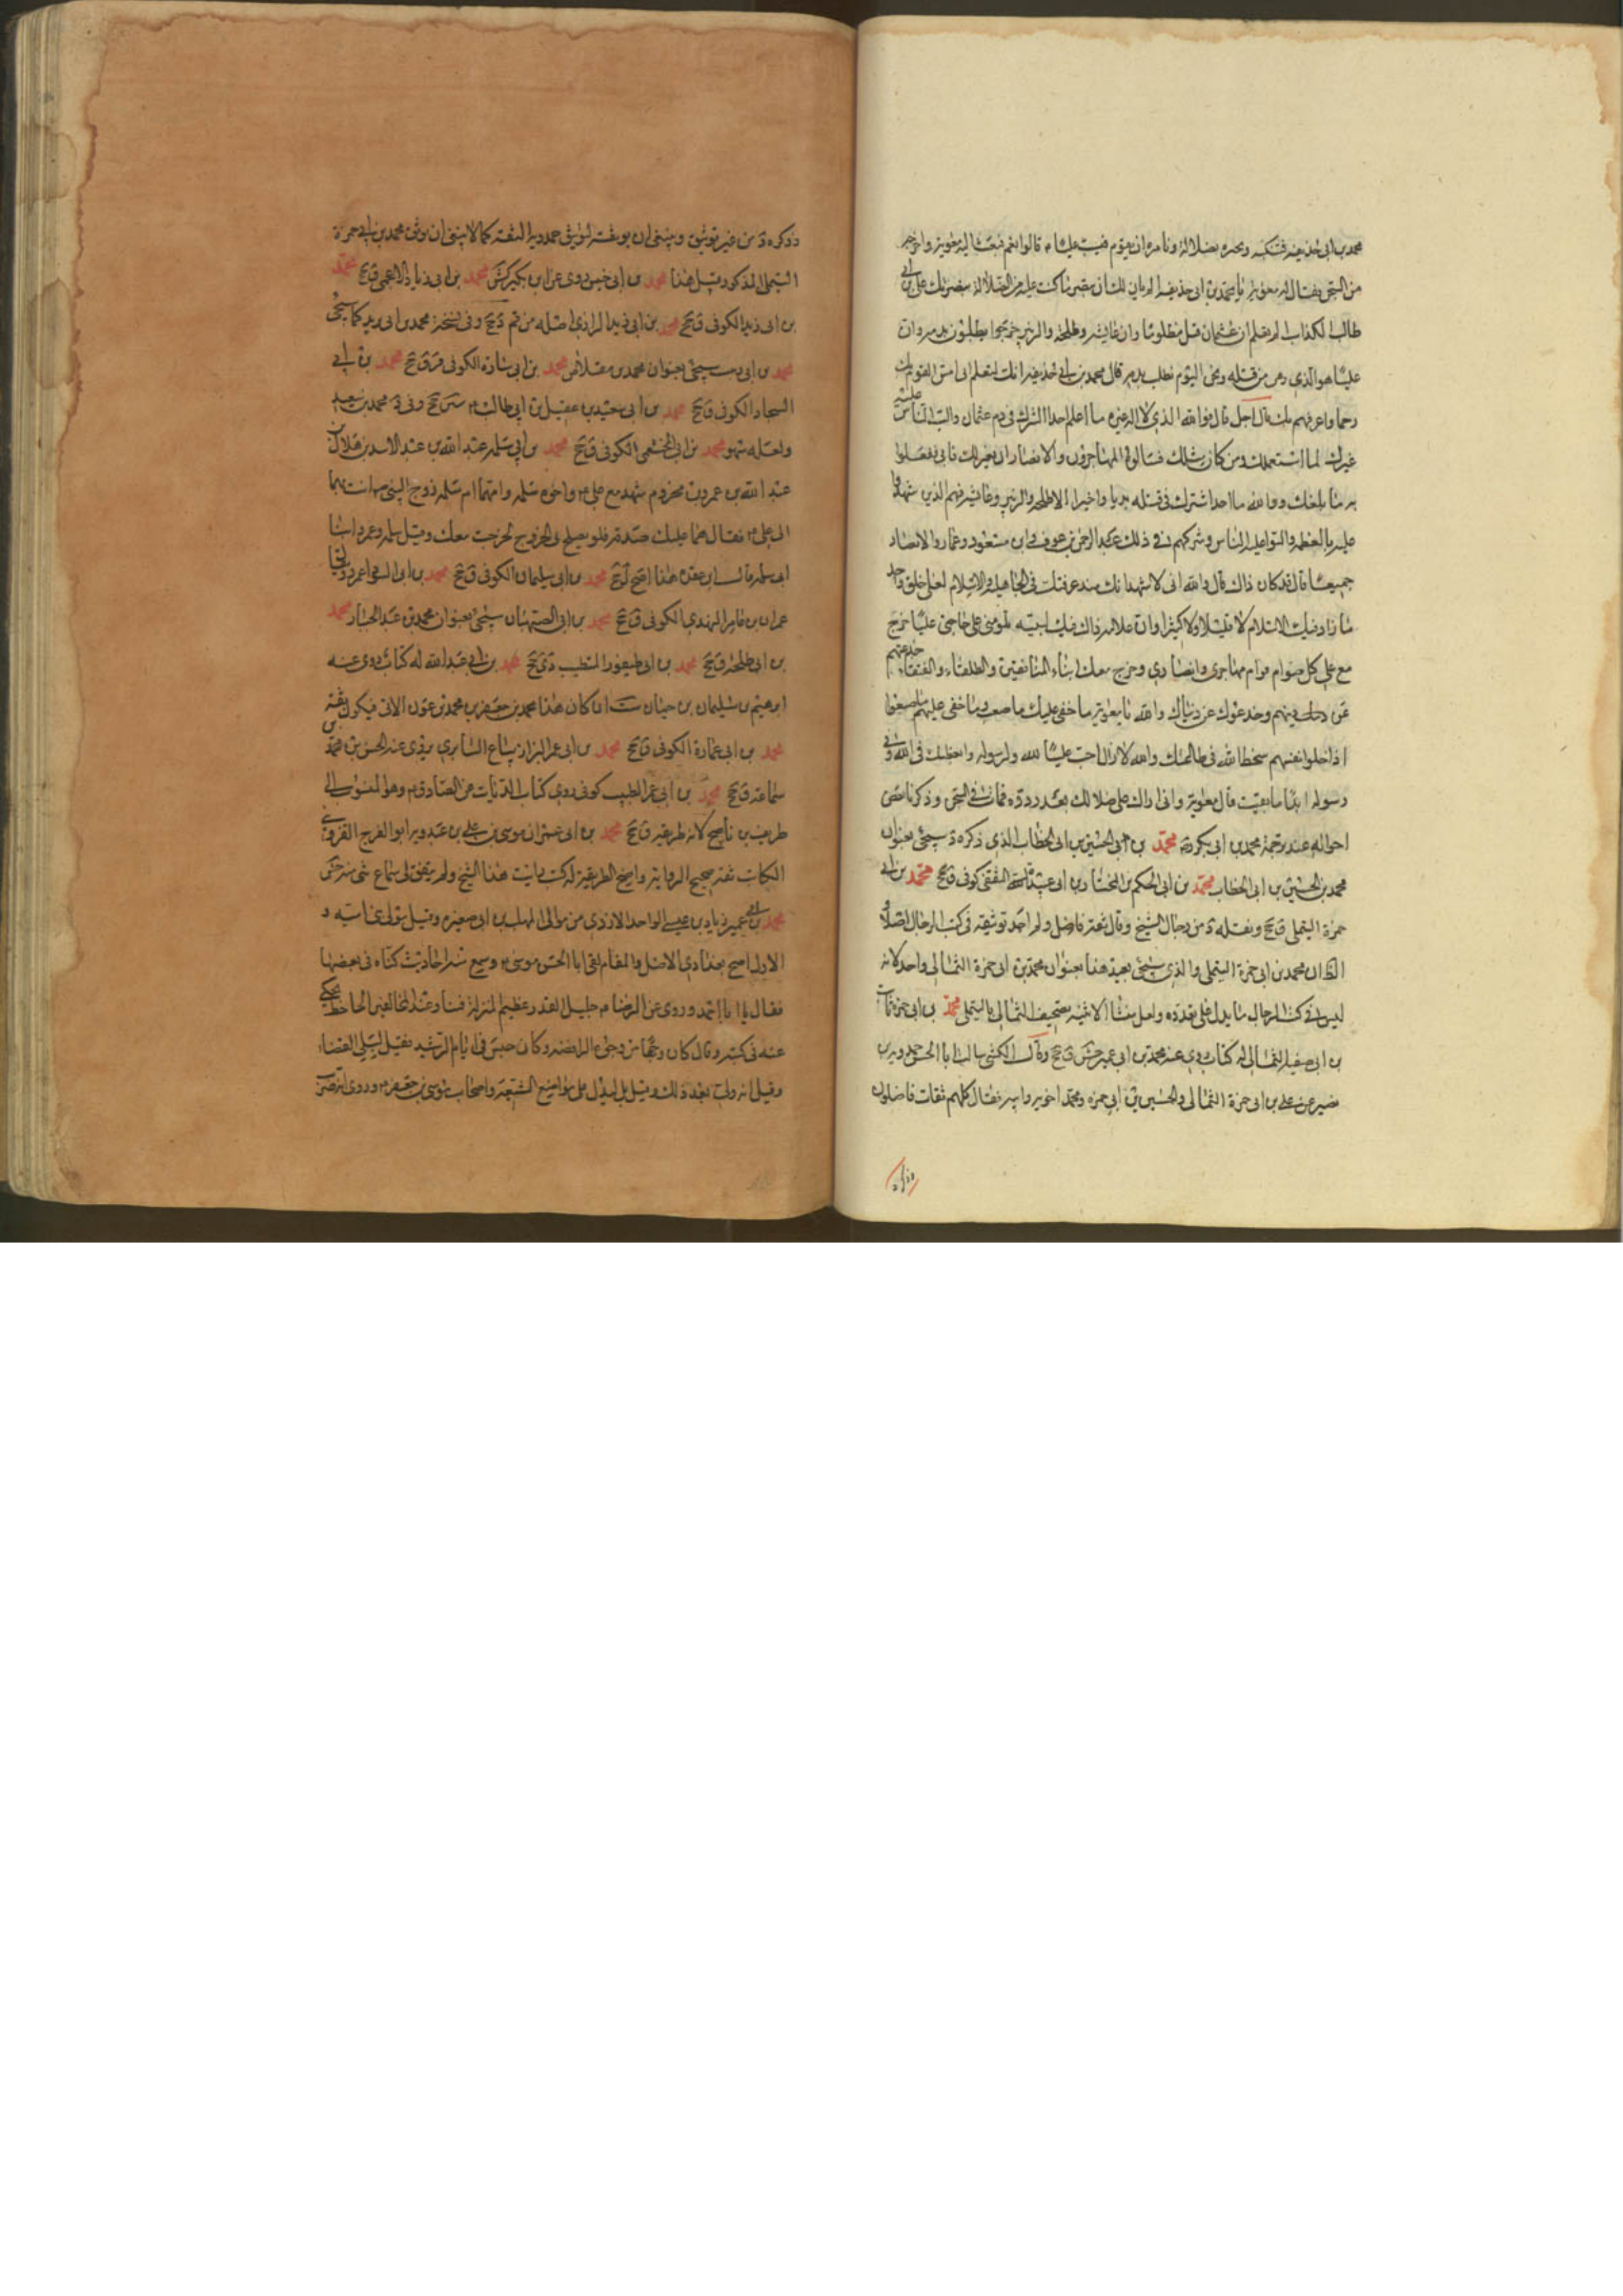 محمد بن ابى حذيفه فنبكته ونخبره بضلالة ونامره ان يقوم فيسب عليا م قالوا نعم فبعث اليه معوية واخرجه
من السجن فقال له معوية يا محمد بن ابى حذيفه الم يان لك ان تبصر ما كنت عليه من الضلالة بنصرتك على بن ابي
طالب الكذاب الم تعلم ان عثمان قتل مظلوما وان عايشه وطلحه والزبير خرجوا يطلبون بدمه وان
عليا هو الذي دس من قتله ونحن اليوم نطلب بدمه قال محمد بن ابي حذيفه انك لتعلم انى امس القوم بك
رحما واعرفهم بك قال اجل قال فوالله الذي لا اله غيره ما اعلم احدا شرك في دم عثمان والب الناس عليه
غيرك لما استعملك ومن كان مثلك فسالوه المهاجرون والانصار ان يعزلك فابى ففعلوا
به ما بلغك ووالله ما احد اشترك فى قتله بديا واخيرا الا طلحه والزبير وعايشه فهم الذين شهدوا
عليه بالعظمه والبوا عليه الناس وشركهم في ذلك عبد الرحمن بن عوف وابن مسعود وعمار والانصار
جميعا قال قد كان ذاك قال والله انى لاشهد انك منذ عرفتك فى الجاهلية والاسلام لعلى خلق واحد
ما زاد فيك الاسلام لا قليلا ولا كثيرا وان علامه ذلك فيك لبينه تلومنى على حبى عليا خرج
مع على كل صوام قوام مهاجري وانصاري وخرج معك ابناء المنافقين والطلقاء والعتقاء خدعتهم
عن دينهم وخدعوك عن دنياك والله يا معوية ما خفى عليك ما صنعت وما خفى عليهم ما صنعوا
اذ احلوا انفسهم سخط الله فى طاعتك والله لا ازال احب عليا لله ولرسوله وابغضك فى الله وفي
رسوله ابدا ما بقيت قال معوية وانى اراك على ضلالك بعد ردوه فمات في السجن وذكرنا بعض
احواله عند ترجمة محمد بن ابى بكر محمد بن ابى الحسين بن ابى الخطاب الذي ذكره د سيجئ بعنوان
محمد بن الحسين بن ابى الخطاب محمد بن ابى الحكم بن المختار بن ابى عبيدة الثقفى كوفى ق جخ محمد بن ابي
حمزة التيملى ق جخ ونقله د من رجال الشيخ وقال ثقة فاضل ولم اجد توثيقه فى كتب الرجال اصلا و
الظ ان محمد بن ابى حمزة التيملى والذى سيجئ بعيد هذا بعنوان محمد بن ابى حمزة الثمالى واحد لانه
ليس في كتب الرجال ما يدل على تعدده ولعل منشا الاثنينيه تصحيف الثمالى بالتيملى محمد بن ابى حمزة ثابت
بن ابى صفيه الثمالى له كتاب روى عنه محمد بن ابى عمير جش ق جخ وقال الكشى سالت ابا الحسن حمدويه بن
نصير عن على بن ابى حمزة الثمالى والحسين بن ابى حمزه ومحمد اخويه وابيه فقال كلهم ثقات فاضلون
وذكره د من غير توثيق وينبغى ان يوثقه لتوثيق حمدويه الثقة كما لا ينبغى ان يوثق محمد بن ابي حمزة
التيملى المذكور قبيل هذا محمد بن ابى خنيس روى عن ابن بكير كش محمد بن ابى زياد الاعمى ق جخ محمد
بن ابى زيد الكوفى ق جخ محمد بن ابى زيد الرازى اصله من قم د جخ وفى نسخة محمد بن ابى يزيد كما سيجئ
محمد بن ابى سيجئ بعنوان محمد بن مقلاص محمد بن ابى سارة الكوفى قر ق جخ محمد بن ابي
السجاد الكوفى ق جخ محمد بن ابى سعيد بن عقيل بن ابى طالب م سين جخ وفى د محمد بن سعيد
ولعله سهو محمد بن ابى الخثعمى الكوفى ق جخ محمد بن ابى سلمه عبد الله بن عبد الاسد بن هلال بن
عبد الله بن عمرو بن مخزوم شهد مع على م واخوه سلمه وامهما ام سلمه زوج النبى ص اتت بهما
الى على م فقال هما عليك صدقه فلو يصلح لى الخروج لخرجت معك وقيل سلمه وعمرو ابنا
ابى سلمه قال ابن عقده هذا اصح ل ى جخ محمد بن ابى سليمان الكوفى ق جخ محمد بن ابى السوا عمرو وق
عمران بن عامر النهدي الكوفى ق جخ محمد بن ابى الصهبان سيجئ بعنوان محمد بن عبد الجبار محمد
بن ابى طلحة ق جخ محمد بن ابى طيفور المتطبب دى جخ محمد بن ابي عبد الله له كتاب روى عنه
ابرهيم بن سليمان بن حيان ست ان كان هذا محمد بن جعفر بن محمد بن عون الاتى فيكون ثقة
محمد بن ابى عمارة الكوفى ق جخ محمد بن ابى عمر البزاز بياع السابرى يروى عنه الحسن بن محمد بن
سماعه ق جخ محمد بن ابى عمر الطبيب كوفى روى كتاب الديات عن الصادق م وهو المنسوب الى
ظريف بن ناصح لانه طريقه ق جخ محمد بن ابى عمران موسى بن علي بن عبدويه ابو الفرج القزويني
الكاتب ثقة صحيح الرواية واضح الطريقة له كتب رايت هذا الشيخ ولم يتفق لى سماع شى منه جش
محمد بن ابي عمير زياد بن عيسى ابو احمد الازدى من موالى المهلب بن ابى صفره وقيل مولى بنى اميه و
الاول اصح بغدادى الاصل والمقام لقى ابا الحسن موسى م وسمع منه احاديث كناه فى بعضها
فقال يا ابا احمد وروى عن الرضا م جليل القدر عظيم المنزلة فينا وعند المخالفين الجاحظ يحكى
عنه فى كتبه وقال كان وجها من وجوه الرافضه وكان حبس فى ايام الرشيد فقيل ليلى القضاء
وقيل انه ولى بعد ذلك وقيل بل ليدل على مواضع الشيعة واصحاب موسى بن جعفر م وروى انه ضرب